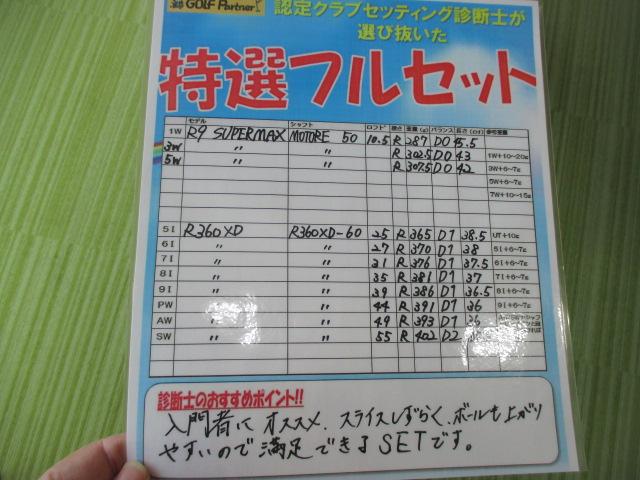 GOLF Partner
認定クラブセッティング診断士が
選び抜いた
特選フルセット
モデル シャフト ロフト 硬さ 重量(g) バランス 長さ(inch) 参考重量
1W R9 SUPERMAX MOTORE 50 10.5 R 287 D0 45.5
3W 〃 〃 R 302.5 D0 43 1W+10~20g
5W 〃 〃 R 307.5 D0 42 3W+6~7g
5W+6~7g
7W+10~15g
5I R360XD R360XD-60 25 R 365 D1 38.5 UT+10g
6I 〃 〃 27 R 370 D1 38 5I+6~7g
7I 〃 〃 31 R 376 D1 37.5 6I+6~7g
8I 〃 〃 35 R 381 D1 37 7I+6~7g
9I 〃 〃 39 R 386 D1 36.5 8I+6~7g
PW 〃 〃 44 R 391 D1 36 9I+6~7g
AW 〃 〃 49 R 393 D1 36
SW 〃 〃 55 R 402 D2
診断士のおすすめポイント!!
入門者にオススメ、スライスしずらく、ボールも上がり
やすいので満足できるSETです。